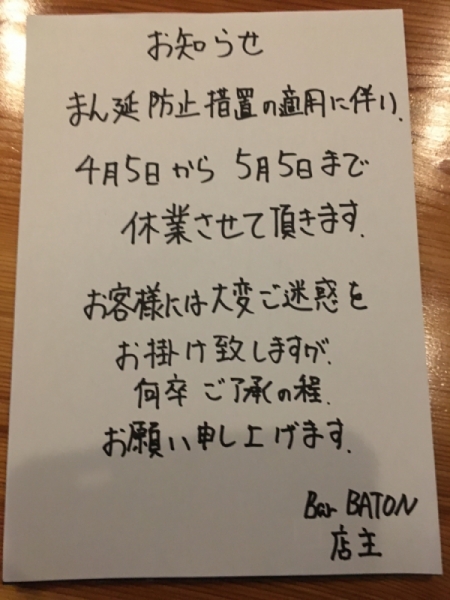 お知らせ
まん延防止措置の適用に伴い、
4月5日から5月5日まで
休業させて頂きます。
お客様には大変ご迷惑を
お掛け致しますが、
何卒ご了承の程、
お願い申し上げます。
Bar BATON
店主